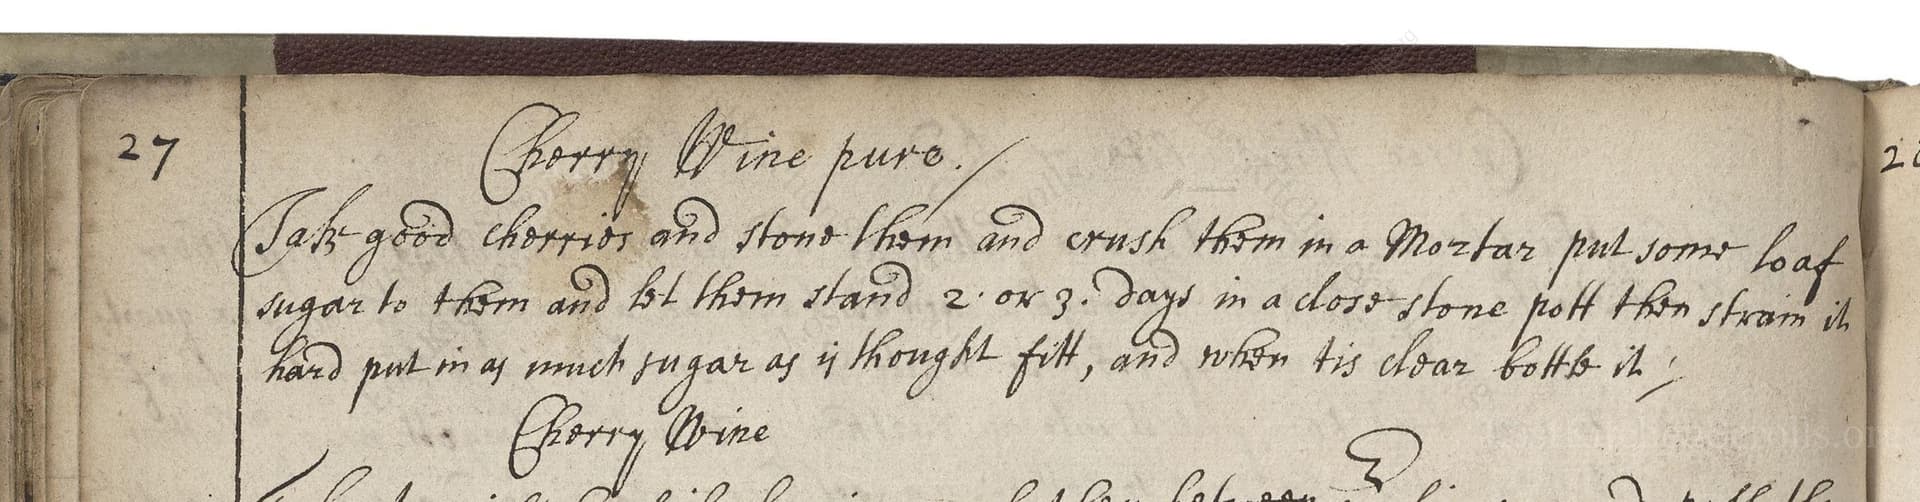 27
Cherry Wine pure.
Take good cherries and stone them and crush them in a Mortar put some loaf
sugar to them and let them stand 2. or 3. days in a close stone pott then strain it
hard put in as much sugar as is thought fitt, and when tis clear bottle it
Cherry Wine